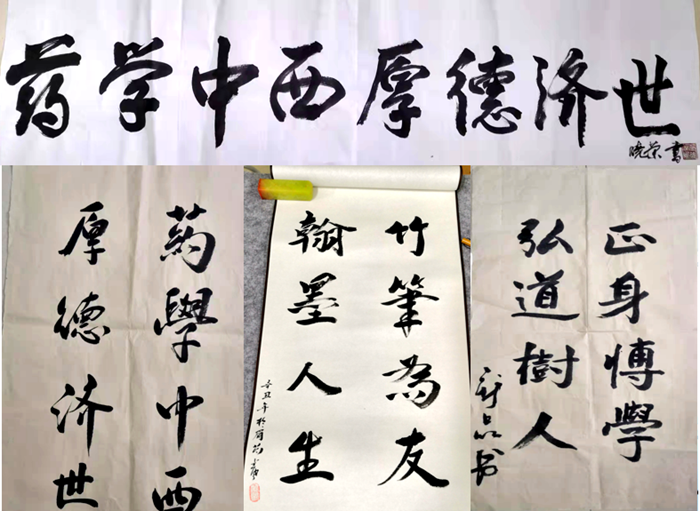 药学中西厚德济世
晓荣书
药學中西
厚德济世
竹筆為友
翰墨人生
辛丑年
正身博學
弘道樹人